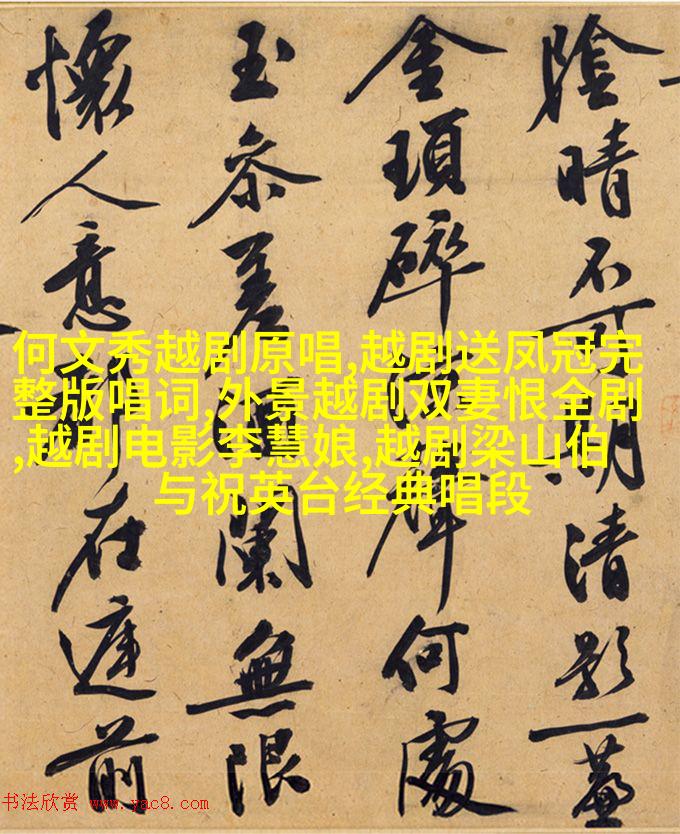 何文秀越剧原唱,越剧送凤冠完
整版唱词,外景越剧双妻恨全剧
,越剧电影李慧娘,越剧梁山伯
与祝英台经典唱段
陰晴不可期清影一
金瑣碎聲何處
玉參差闌無限
懷人意在前
书法欣赏 www.yac8.com